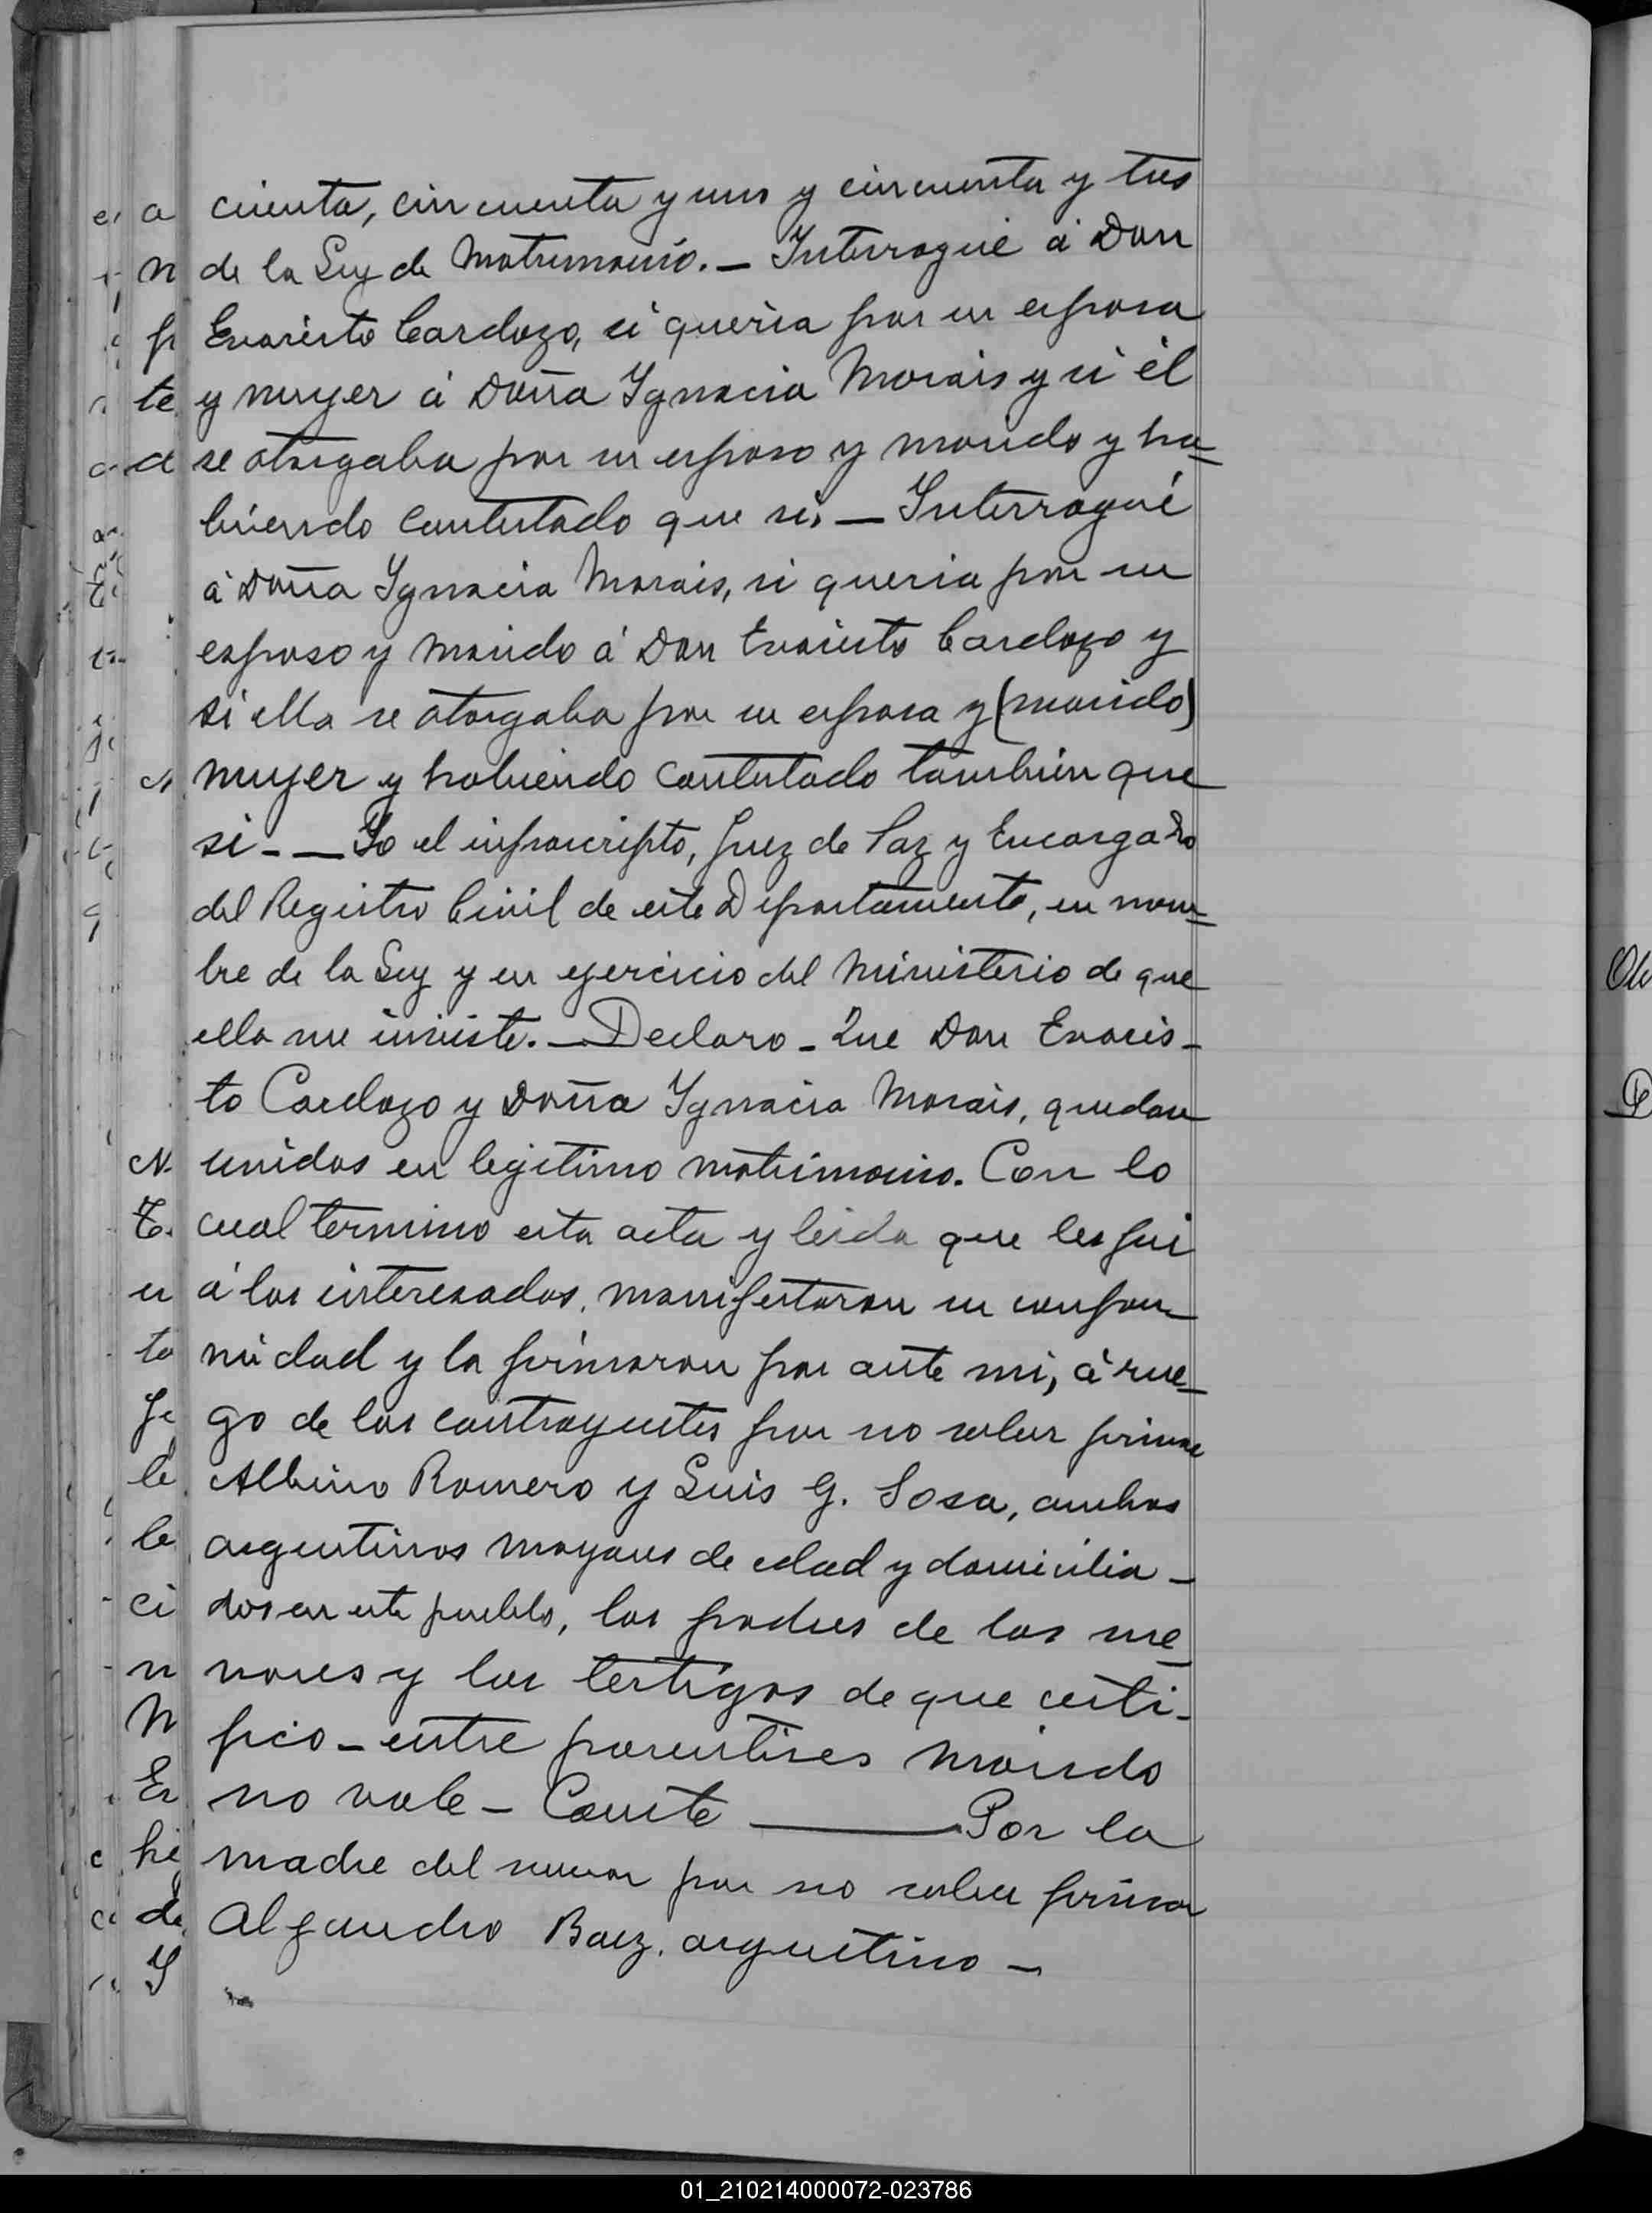 cuenta, cincuenta y uno y cincuenta y tres
de la Ley de Matrimonio. — Interrogué á Don
Evaristo Cardozo, si quería por su esposa
y muyer á Doña Ygnacia Morais y si él
se otorgaba por su esposo y marido y ha=
biendo contestado que si, — Interrogué
á Doña Ygnacia Morais, si queria por su
esposo y marido á Don Evaristo Cardozo y
si ella se otorgaba por su esposa y (marido)
muyer y habiendo contestado tambien que
si - — Yo el infrascripto, Juez de Paz y Encargado
del Registro Civil de este Departamento, en nom=
bre de la Ley y en ejercicio del Ministerio de que
ella me inviste. — Declaro - Que Don Evaris-
to Cardozo y Doña Ygnacia Morais, quedan
unidos en legitimo matrimonio. Con lo
cual termino esta acta y leida que les fui
á los interesados, manifestaron su confor-
midad y la firmaron por ante mi, á rue-
go de los contrayentes por no saber firmar
Albino Romero y Luis G. Sosa, ambos
argentinos mayores de edad y domicilia-
dos en este pueblo, los padres de los me=
nores y los testigos de que certi-
fico - entre parentises marido
no vale - Conste ——— Por la
madre del menor por no saber firmar
Alejandro Baez, argentino —
01_210214000072-023786